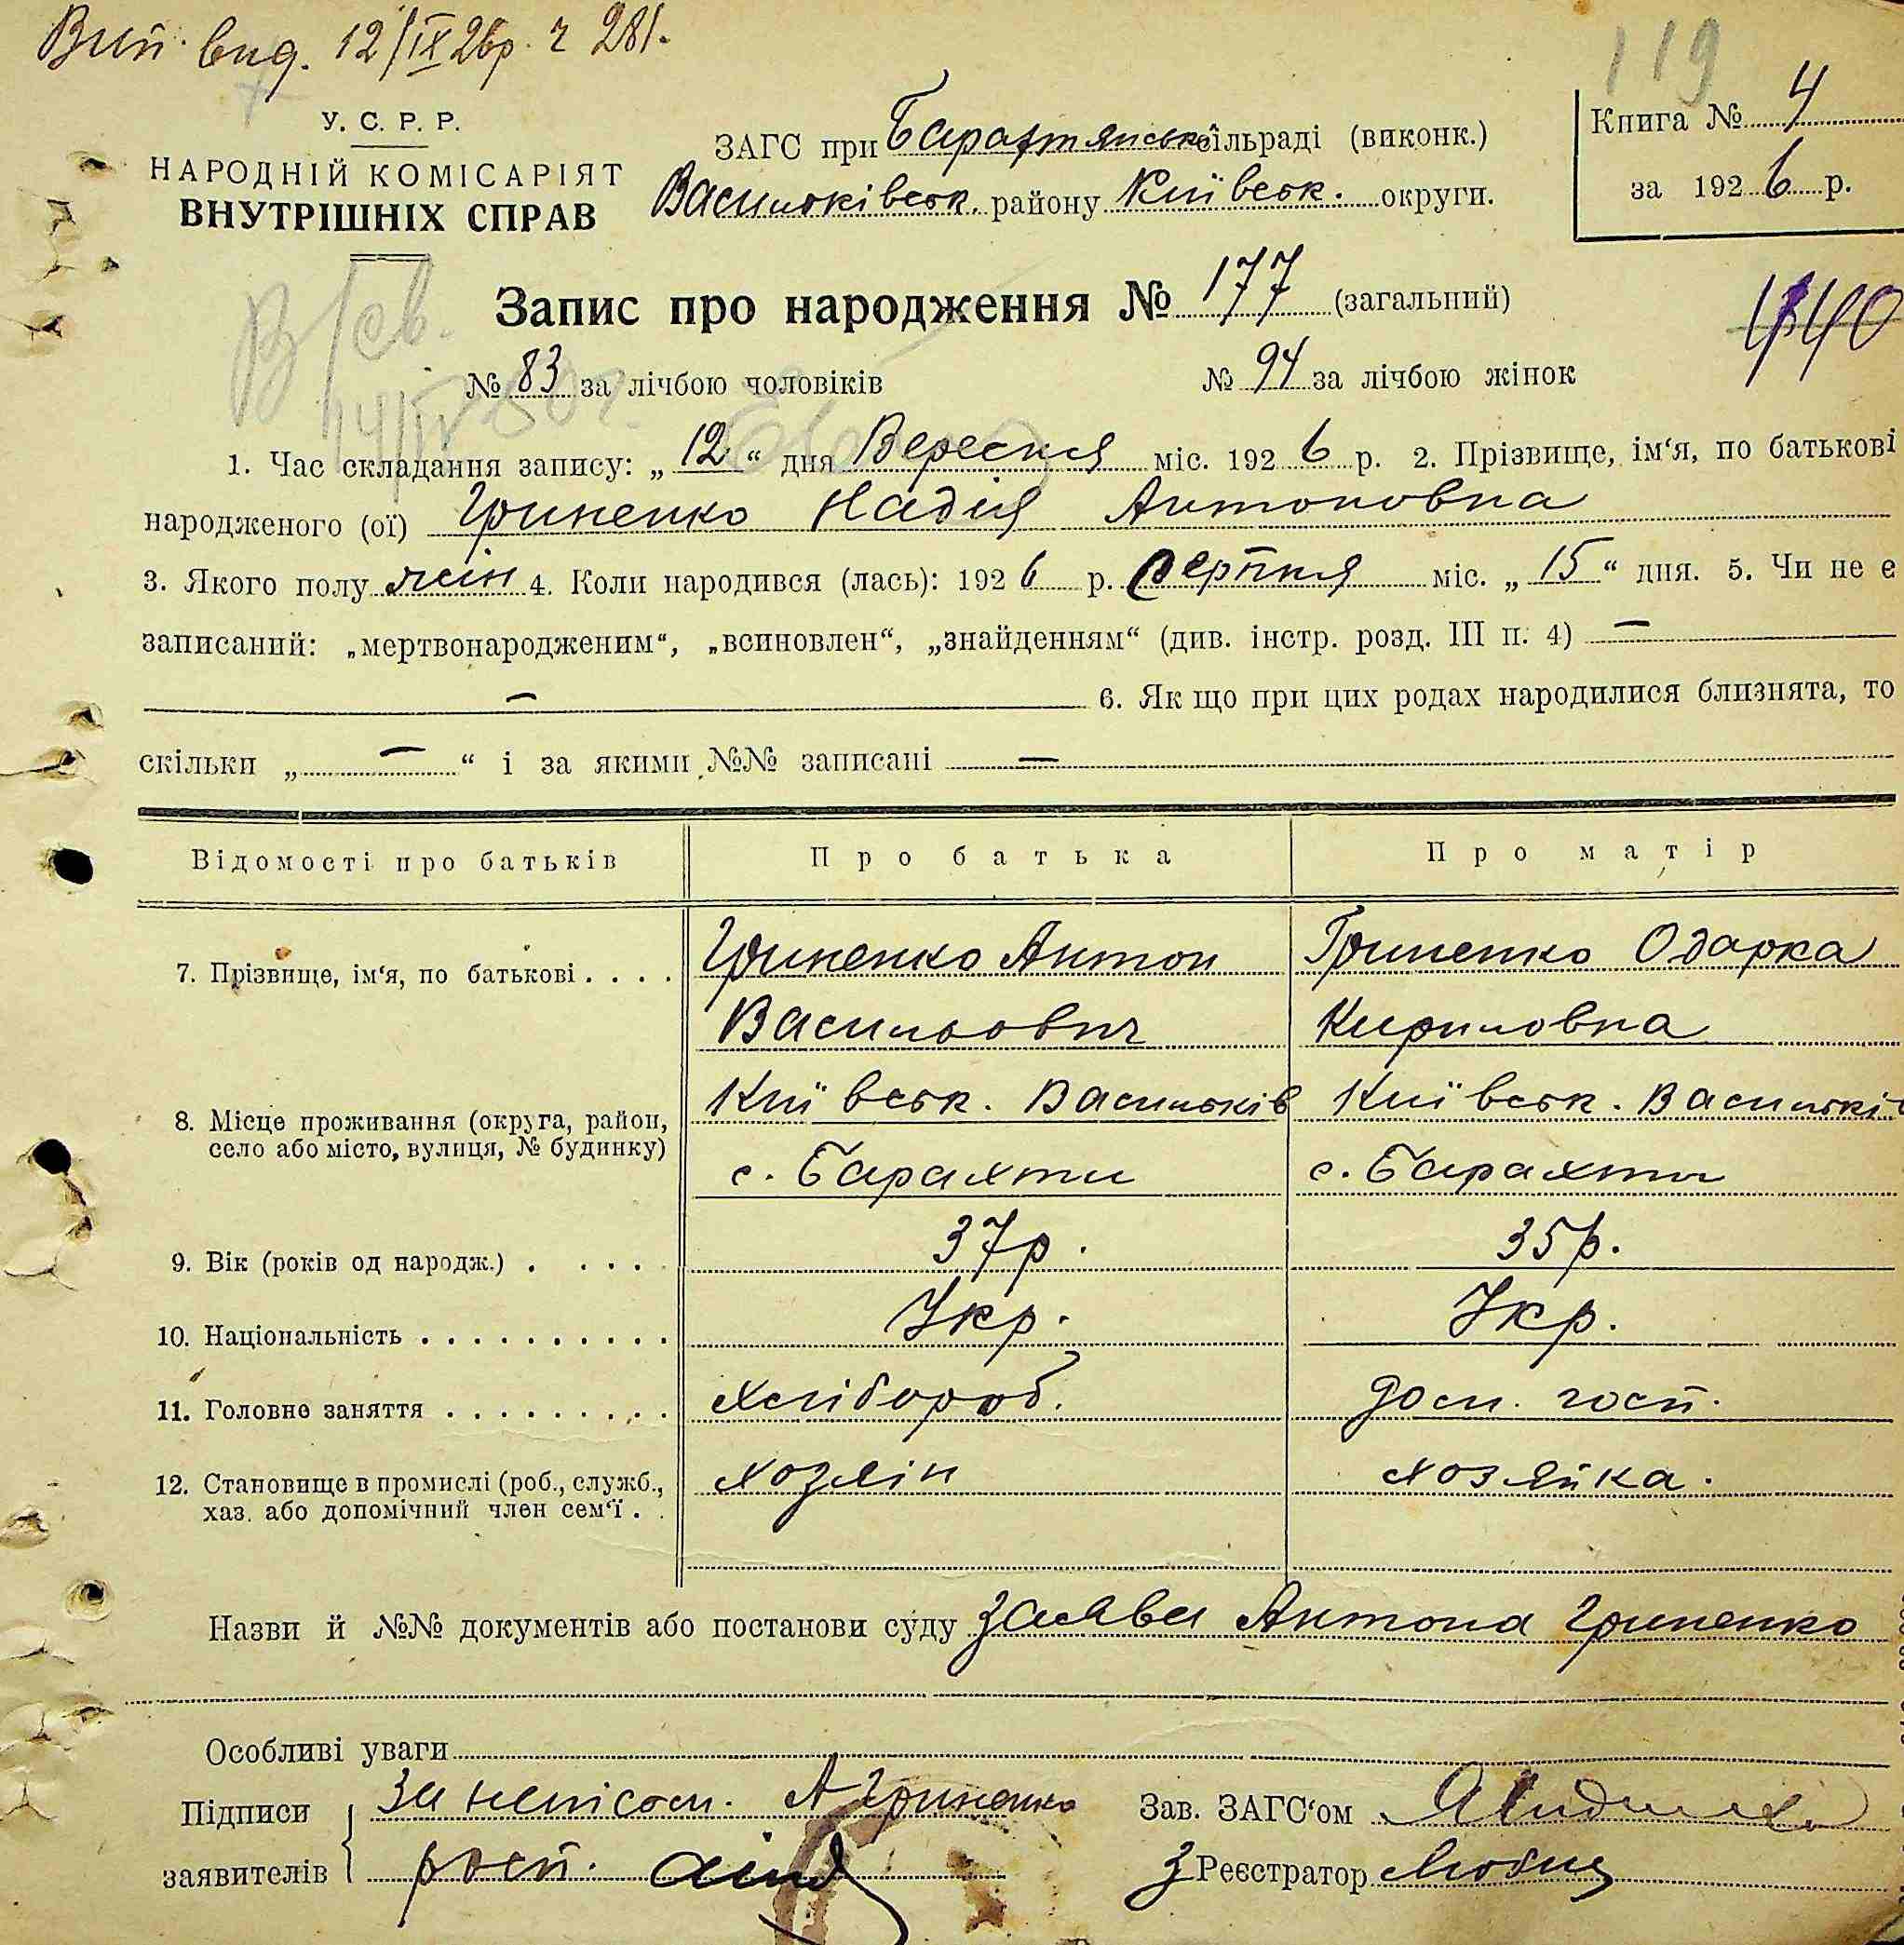 Вип. вид. 12/IX 26р. ч 281.
119
У. С. Р. Р.
НАРОДНІЙ КОМІСАРІЯТ
ВНУТРІШНІХ СПРАВ
ЗАГС при Барахтянськ сільраді (виконк.)
Васильківськ. району Київськ. округи.
Книга № 4
за 1926 р.
Запис про народження № 177 (загальний)
№ 83 за лічбою чоловіків № 94 за лічбою жінок
1. Час складання запису: „12“ дня Вересня міс. 1926 р. 2. Прізвище, ім‘я, по батькові
народженого (ої) Гриненко Надія Антоновна
3. Якого полу жін 4. Коли народився (лась): 1926 р. Серпня міс. „15“ дня. 5. Чи не є
записаний: „мертвонародженим“, „всиновлен“, „знайденням“ (див. інстр. розд. III п. 4) —
— 6. Як що при цих родах народилися близнята, то
скільки „ — “ і за якими №№ записані —
Відомості про батьків Про батька Про матір
7. Прізвище, ім‘я, по батькові . . . . Гриненко Антон Гриненко Одарка
Васильович Кириловна
8. Місце проживання (округа, район, Київськ. Васильків Київськ. Васильків
село або місто, вулиця, № будинку) с. Барахти с. Барахти
9. Вік (років од народж.) . . . . . 37р. 35р.
10. Національність . . . . . . . . . . Укр. Укр.
11. Головне заняття . . . . . . . . . Хлібороб. дом. госп.
12. Становище в промислі (роб., служб., хозяін хозяйка.
хаз. або допомічний член сем‘ї . .
Назви й №№ документів або постанови суду Заява Антона Гриненко
Особливі уваги
Підписи За неписьм. А Гриненко Зав. ЗАГС‘ом
заявителів росп. Реєстратор